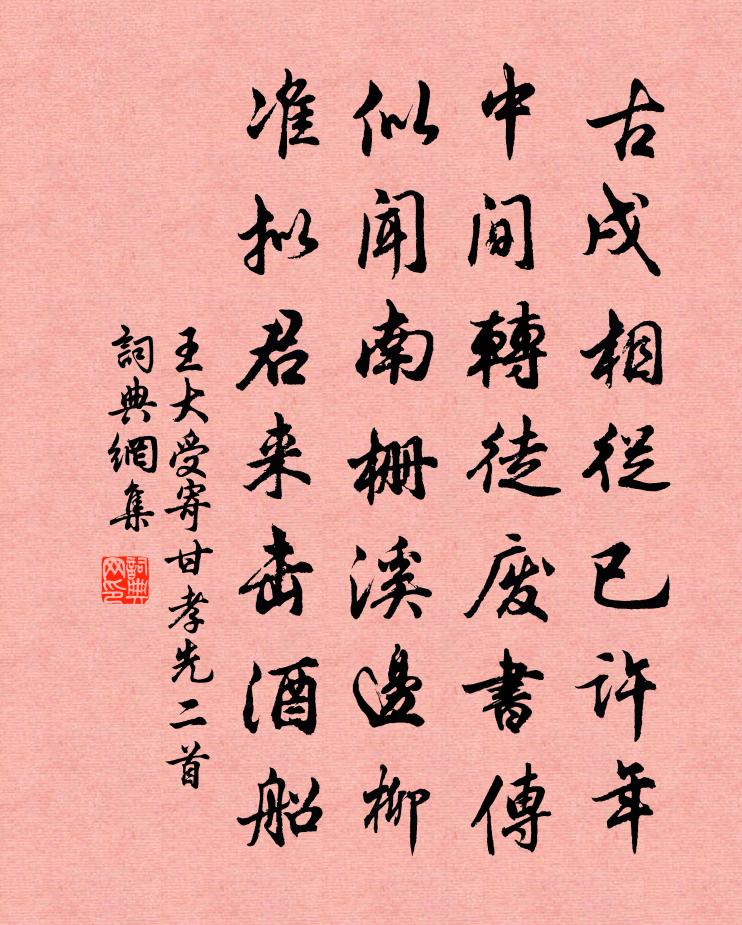 古戍相從已許年
中間轉徒廢書傳
似聞南柵溪邊柳
准拟君来击酒船
王大受寄甘孝先二首
詞典網集
詞典网印